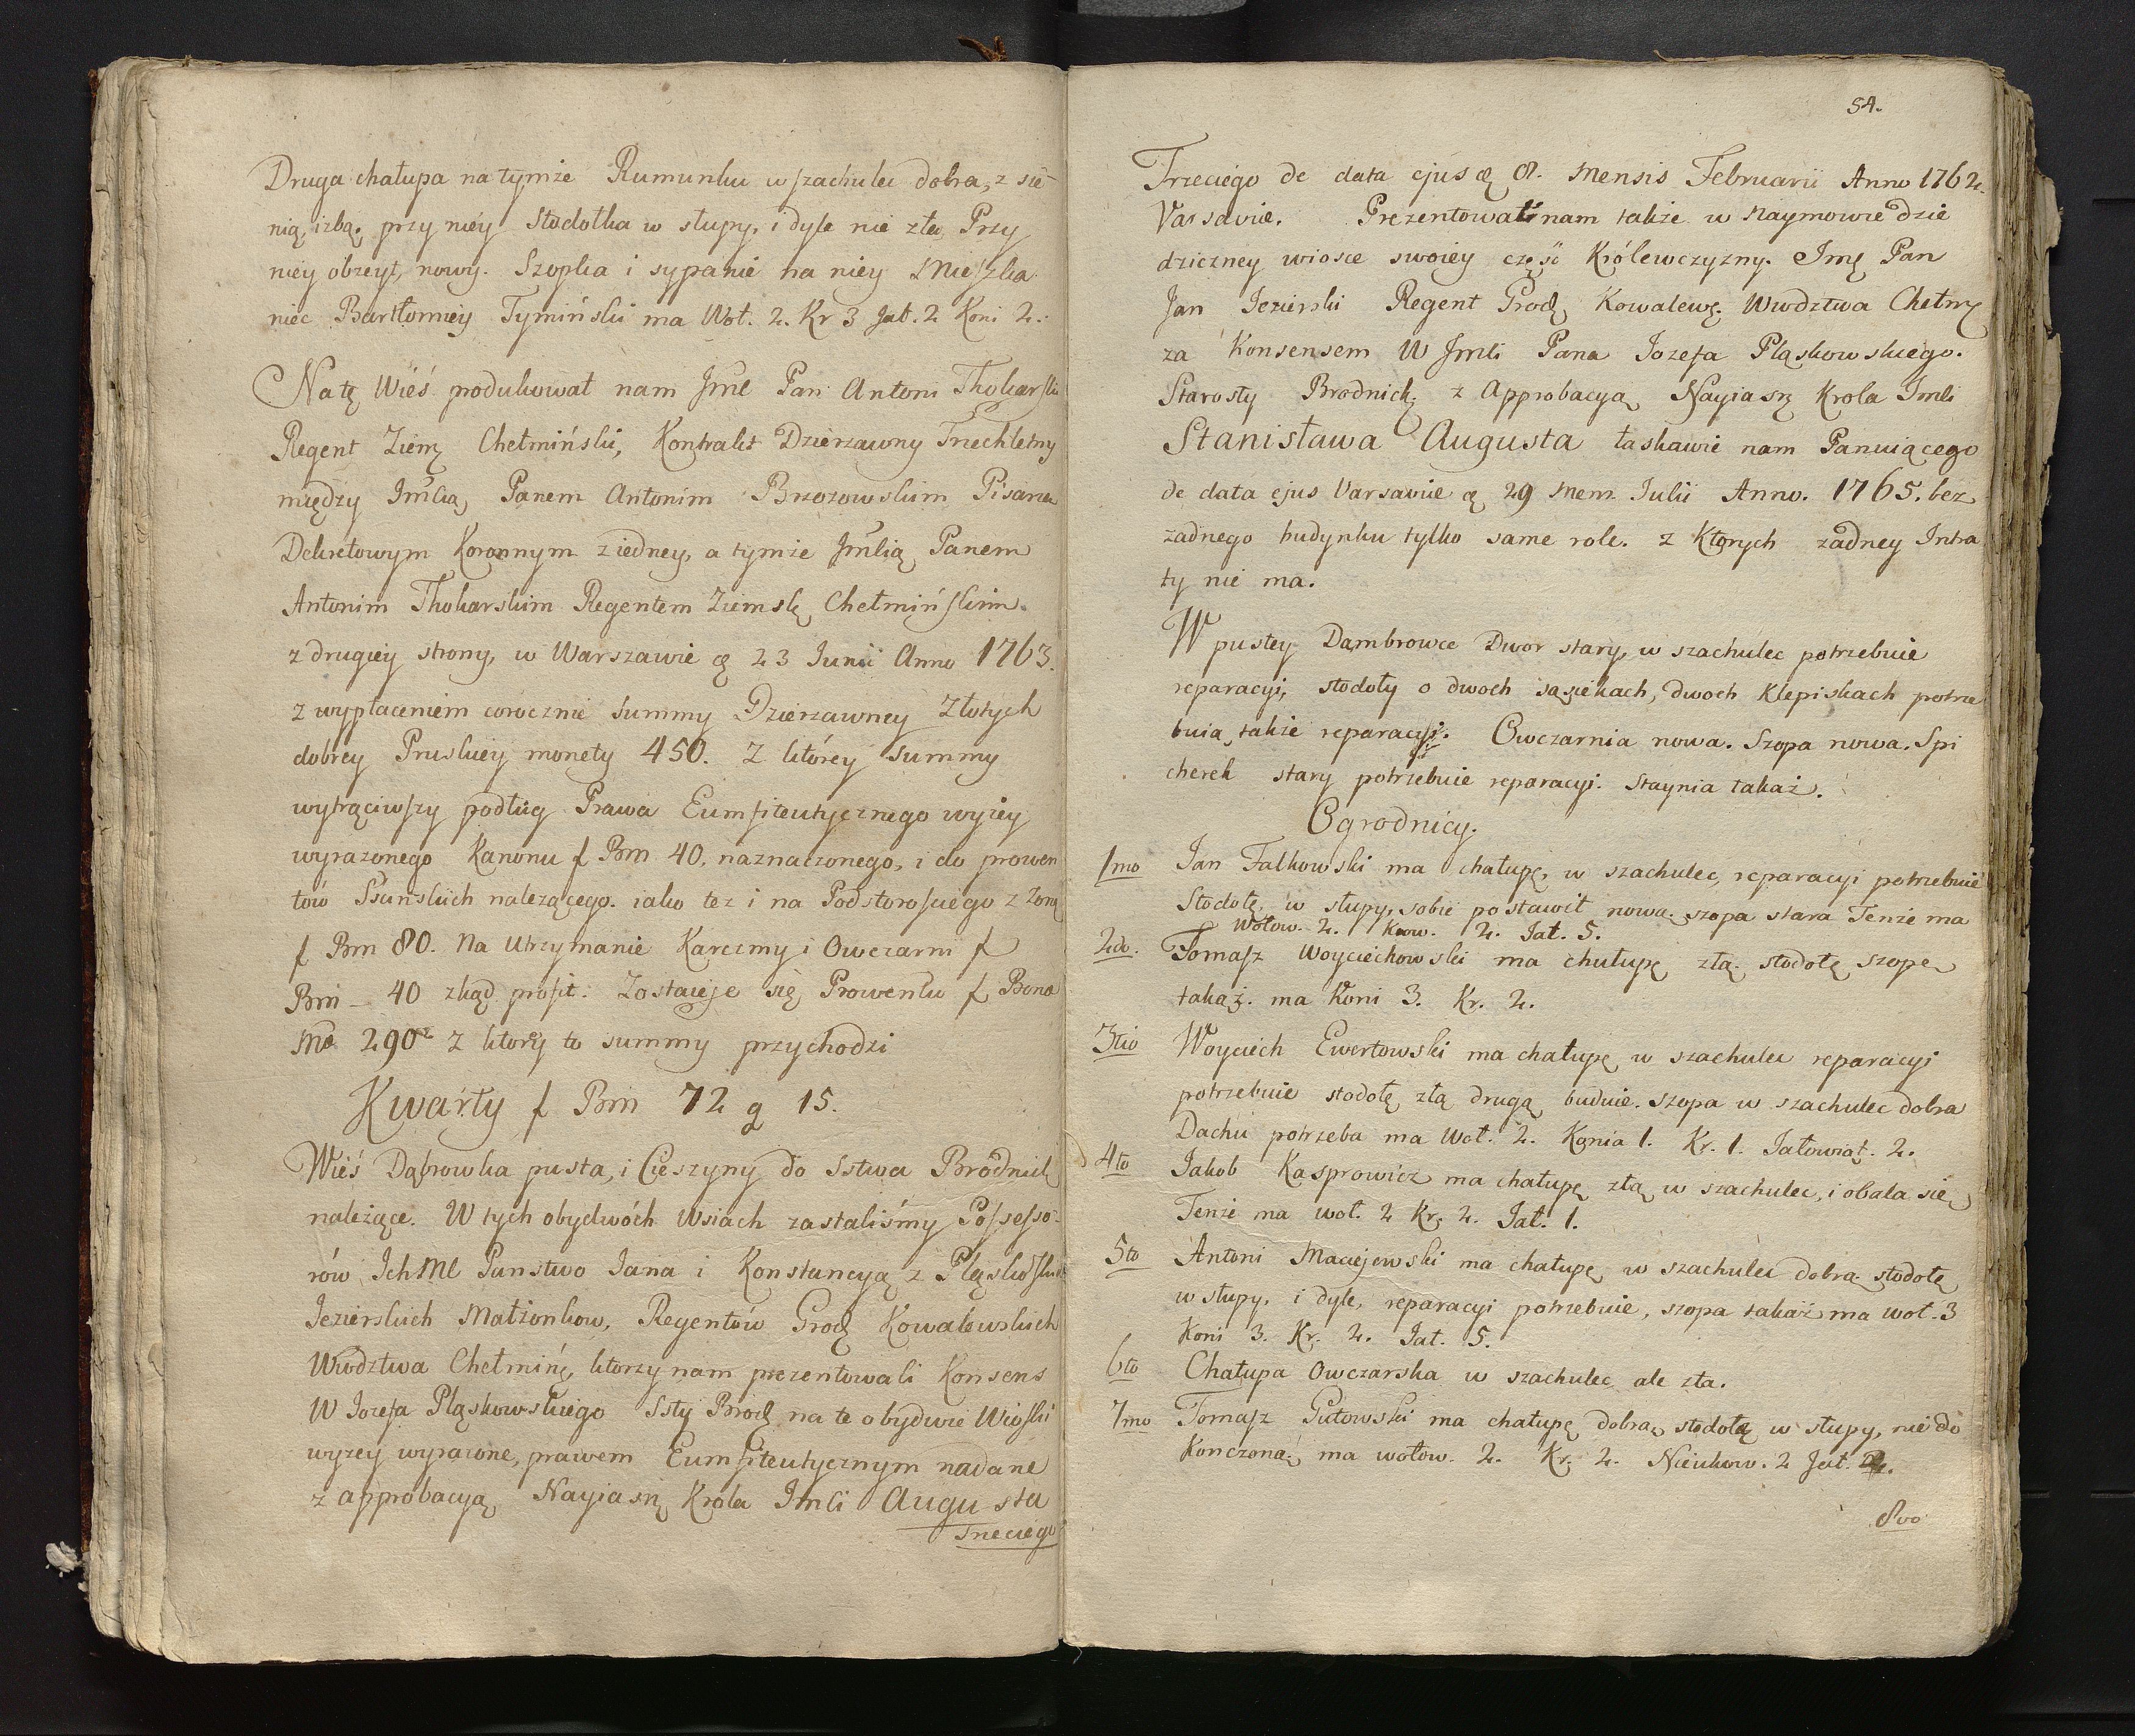 Druga chałupa na tymże Rumunku w szachulec dobra, z sie-
nią, izbą, przy niey Stodołka w słupy, i dyle nie zła, Przy
niey obzeyt, nowy. Szopka i sypanie na niey Mieszka
niec Bartłomiey Tymiński ma Woł. 2. Kr 3 Jał. 2 Koni 2.
Na tę Wieś produkował nam Jmć Pan Antoni Thokarski
Regent Ziem. Chełmiński, Kontrakt Dzierżawny Trzechletny
między Jmcią Panem Antonim Brzozowskim Pisarzem
Dekretowym Koronnym z iedney, a tymże Jmcią Panem
Antonim Thokarskim Regentem Ziemsk. Chełmińskim
z drugiey strony, w Warszawie d. 23 Junii Anno 1763.
z wypłaceniem corocznie summy Dzierżawney Złotych
dobrey Pruskiey monety 450. Z którey summy
wytrąciwszy podług Prawa Eumfiteutycznego wyżey
wyrażonego Kanonu f Bm 40, naznaczonego, i do prowen
tów Sścińskich należącego. iako też i na Podstorościego z Żoną
f Bm 80. Na Utrzymanie Karczmy i Owczarni f
Bm – 40 zkąd profit. Zostaieje się Prowentu f Bona
Mo 290 Z którey to summy przychodzi
Kwarty f Bm 72 g 15.
Wieś Dąbrowka pusta, i Cieszyny do Sstwa Brodnick
należące. W tych obydwóch Wsiach zastaliśmy Possesso-
rów Ich Mć Panstwo Jana i Konstancyą z Pląskowskich
Jezierskich Małżonkow, Regentów Grod Kowalewskich
Wwodztwa Chełmiń, ktorzy nam prezentowali Konsens
W Jozefa Pląskowskiego Ssty Brod na te obydwie Wioski
wyżey wyrażone, prawem Eumfiteutycznym nadane
z approbacyą Nayiaśn Krola Jmci Augusta
Trzeciego
54.
Trzeciego de data ejus d. 8. Mensis Februarii Anno 1762.
Varsaviæ. Prezentował nam także w Naymowie dzie
dziczney wiosce swoiey część Królewczyzny. Jmę Pan
Jan Jezierski Regent Grod Kowalew. Wwodztwa Chełm
za Konsensem W Jmci Pana Jozefa Pląskowskiego.
Starosty Brodnick. z Approbacyą Nayiaśn Krola Jmci
Stanisława Augusta łaskawie nam Panuiącego
de data ejus Varsaviæ d. 29 Mens. Julii Anno. 1765. bez
żadnego budynku tylko same role. z Ktorych żadney Intra
ty nie ma.
W pustey Dambrowce Dwor stary, w szachulec potrzebuie
reparacyi, stodoły o dwoch sąsiekach, dwoch Klepiskach potrze
buią także reparacyi. Owczarnia nowa. Szopa nowa. Spi
cherek stary potrzebuie reparacyi. Staynia takaż.
Ogrodnicy.
1mo Jan Falkowski ma chałupę, w szachulec, reparacyi potrzebuie
Stodołę, w słupy, sobie postawił nową. szopa stara Tenże ma
Wołow. 2. Krow. 2. Jał. 5.
2do. Tomasz Woyciechowski ma chałupę złą. stodołę szopę
takąż. ma Koni 3. Kr. 2.
3tio Woyciech Ewertowski ma chałupę w szachulec reparacyi
potrzebuie stodołę złą drugą buduie. szopa w szachulec dobra
Dachu potrzeba ma Woł. 2. Konia 1. Kr. 1. Jałowiąt. 2.
4to Jakob Kasprowicz ma chałupę złą w szachulec, i obala się
Tenże ma woł. 2 Kr. 2. Jał. 1.
5to Antoni Maciejewski ma chałupę w szachulec dobrą. stodołę
w słupy, i dyle, reparacyi potrzebuie, szopa takaż ma woł. 3
Koni 3. Kr. 2. Jał. 5.
6to Chałupa Owczarska w szachulec ale zła.
7mo Tomasz Gutowski ma chałupę dobrą, stodołę w słupy, nie do
kończoną, ma wołow. 2. Kr. 2. Nieukow. 2 Jał. 2.
8vo